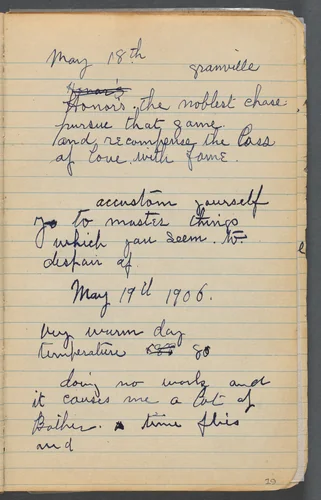 May 18th granville
Honor's
Honor's the noblest chase
pursue that game
and recompense the Loss
of love with fame.
accustom yourself
to to master things
which you seem to
despair of
May 19th 1906.
very warm day
temperature 80
doing no work and
it causes me a Lot of
Bother. time flies
and
20